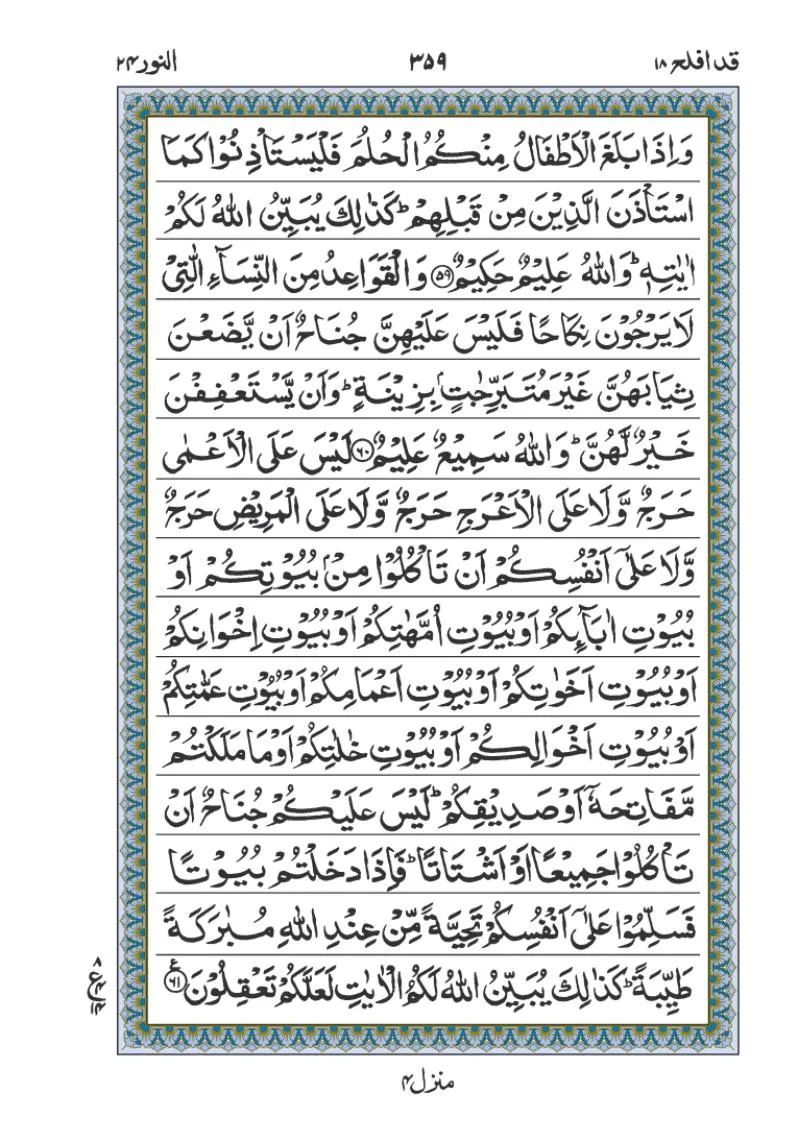 قد افلح ۱۸ ۳۵۹ النور ۲۴
وَاِذَا بَلَغَ الْاَطْفَالُ مِنْكُمُ الْحُلُمَ فَلْيَسْتَاْذِنُوْا كَمَا
اسْتَاْذَنَ الَّذِيْنَ مِنْ قَبْلِهِمْ ؕ كَذٰلِكَ يُبَيِّنُ اللّٰهُ لَكُمْ
اٰيٰتِهٖ ؕ وَاللّٰهُ عَلِيْمٌ حَكِيْمٌ ۝۵۹ وَالْقَوَاعِدُ مِنَ النِّسَآءِ الّٰتِيْ
لَا يَرْجُوْنَ نِكَاحًا فَلَيْسَ عَلَيْهِنَّ جُنَاحٌ اَنْ يَّضَعْنَ
ثِيَابَهُنَّ غَيْرَ مُتَبَرِّجٰتٍۭ بِزِيْنَةٍ ؕ وَاَنْ يَّسْتَعْفِفْنَ
خَيْرٌ لَّهُنَّ ؕ وَاللّٰهُ سَمِيْعٌ عَلِيْمٌ ۝۶۰ لَيْسَ عَلَى الْاَعْمٰى
حَرَجٌ وَّلَا عَلَى الْاَعْرَجِ حَرَجٌ وَّلَا عَلَى الْمَرِيْضِ حَرَجٌ
وَّلَا عَلٰٓى اَنْفُسِكُمْ اَنْ تَاْكُلُوْا مِنْۢ بُيُوْتِكُمْ اَوْ
بُيُوْتِ اٰبَآئِكُمْ اَوْ بُيُوْتِ اُمَّهٰتِكُمْ اَوْ بُيُوْتِ اِخْوَانِكُمْ
اَوْ بُيُوْتِ اَخَوٰتِكُمْ اَوْ بُيُوْتِ اَعْمَامِكُمْ اَوْ بُيُوْتِ عَمّٰتِكُمْ
اَوْ بُيُوْتِ اَخْوَالِكُمْ اَوْ بُيُوْتِ خٰلٰتِكُمْ اَوْ مَا مَلَكْتُمْ
مَّفَاتِحَهٗٓ اَوْ صَدِيْقِكُمْ ؕ لَيْسَ عَلَيْكُمْ جُنَاحٌ اَنْ
تَاْكُلُوْا جَمِيْعًا اَوْ اَشْتَاتًا ؕ فَاِذَا دَخَلْتُمْ بُيُوْتًا
فَسَلِّمُوْا عَلٰٓى اَنْفُسِكُمْ تَحِيَّةً مِّنْ عِنْدِ اللّٰهِ مُبٰرَكَةً
طَيِّبَةً ؕ كَذٰلِكَ يُبَيِّنُ اللّٰهُ لَكُمُ الْاٰيٰتِ لَعَلَّكُمْ تَعْقِلُوْنَ ۝۶۱ ع
منزل ۴